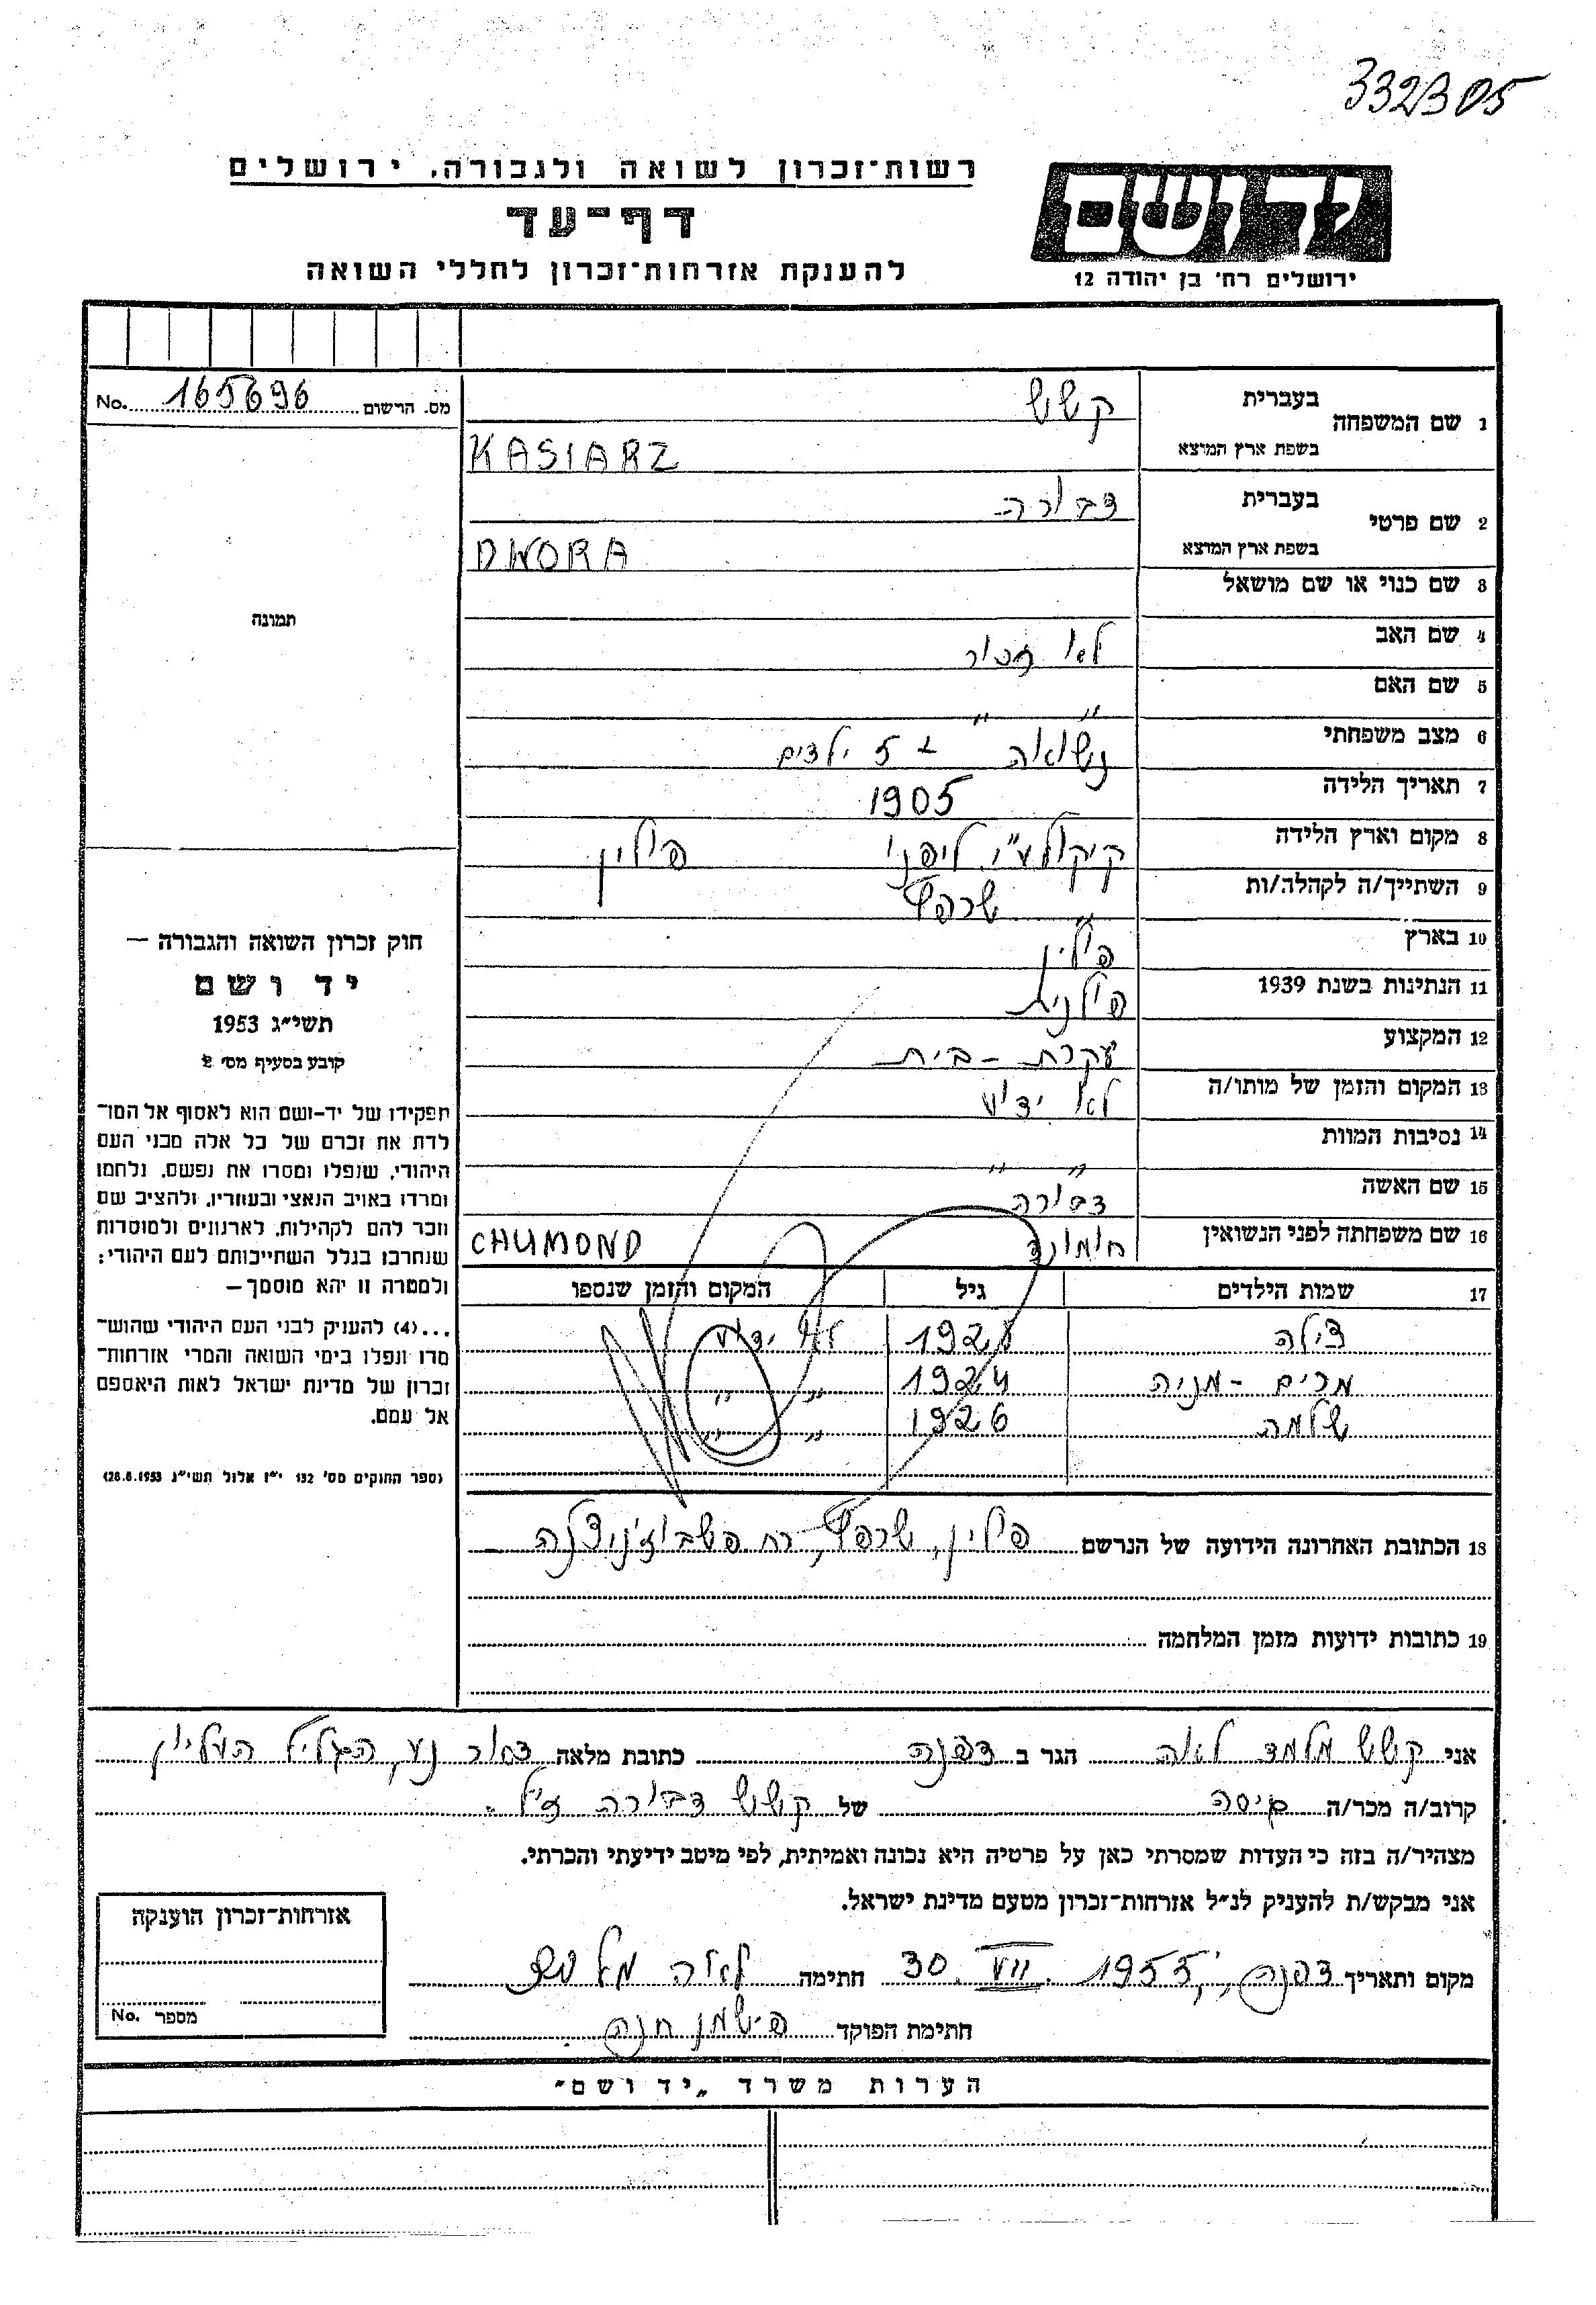 332305
רשות־זכרון לשואה ולגבורה, ירושלים
דף־עד
להענקת אזרחות־זכרון לחללי השואה
יד ושם
ירושלים רח׳ בן יהודה 12
מס. הרשום 165696 No.
1 שם המשפחה בעברית קשש
בשפת ארץ המוצא KASIARZ
2 שם פרטי בעברית דבורה
בשפת ארץ המוצא DWORA
תמונה
3 שם כנוי או שם מושאל
4 שם האב לא זכור
5 שם האם " "
6 מצב משפחתי נשואה + 5 ילדים
7 תאריך הלידה 1905
8 מקום וארץ הלידה ע"י ליפנו פולין
9 השתייך/ה לקהלה/ות
10 בארץ פולין
11 הנתינות בשנת 1939 פולנית
12 המקצוע עקרת - בית
13 המקום והזמן של מותו/ה לא ידוע
14 נסיבות המוות " "
15 שם האשה דבורה
16 שם משפחתה לפני הנשואין חומונד CHUMOND
17 שמות הילדים גיל המקום והזמן שנספו
צילה לא ידוע
מרים - מניה 1924 " "
שלמה 1926 " "
18 הכתובת האחרונה הידועה של הנרשם פולין, רח.
19 כתובות ידועות מזמן המלחמה
חוק זכרון השואה והגבורה —
יד ושם
תשי״ג 1953
קובע בסעיף מס׳ 2
תפקידו של יד-ושם הוא לאסוף אל המו־
לדת את זכרם של כל אלה מבני העם
היהודי, שנפלו ומסרו את נפשם, נלחמו
ומרדו באויב הנאצי ובעוזריו, ולהציב שם
וזכר להם לקהילות, לארגונים ולמוסדות
שנחרבו בגלל השתייכותם לעם היהודי;
ולמטרה זו יהא מוסמך —
...(4) להעניק לבני העם היהודי שהוש־
מדו ונפלו בימי השואה והמרי אזרחות־
זכרון של מדינת ישראל לאות היאספם
אל עמם.
(ספר החוקים מס׳ 132 י״ז אלול תשי״ג 28.8.1953)
אני קשש מלמד לאה הגר ב דפנה כתובת מלאה דאר נע, הגליל העליון
קרוב/ה מכר/ה גיסה של קשש דבורה ז"ל.
מצהיר/ה בזה כי העדות שמסרתי כאן על פרטיה היא נכונה ואמיתית, לפי מיטב ידיעתי והכרתי.
אני מבקש/ת להעניק לנ״ל אזרחות־זכרון מטעם מדינת ישראל.
מקום ותאריך דפנה, 30. VII. 1955 חתימה לאה מלמד
חתימת הפוקד פישמן חנה
אזרחות־זכרון הוענקה
מספר No.
הערות משרד „יד ושם״